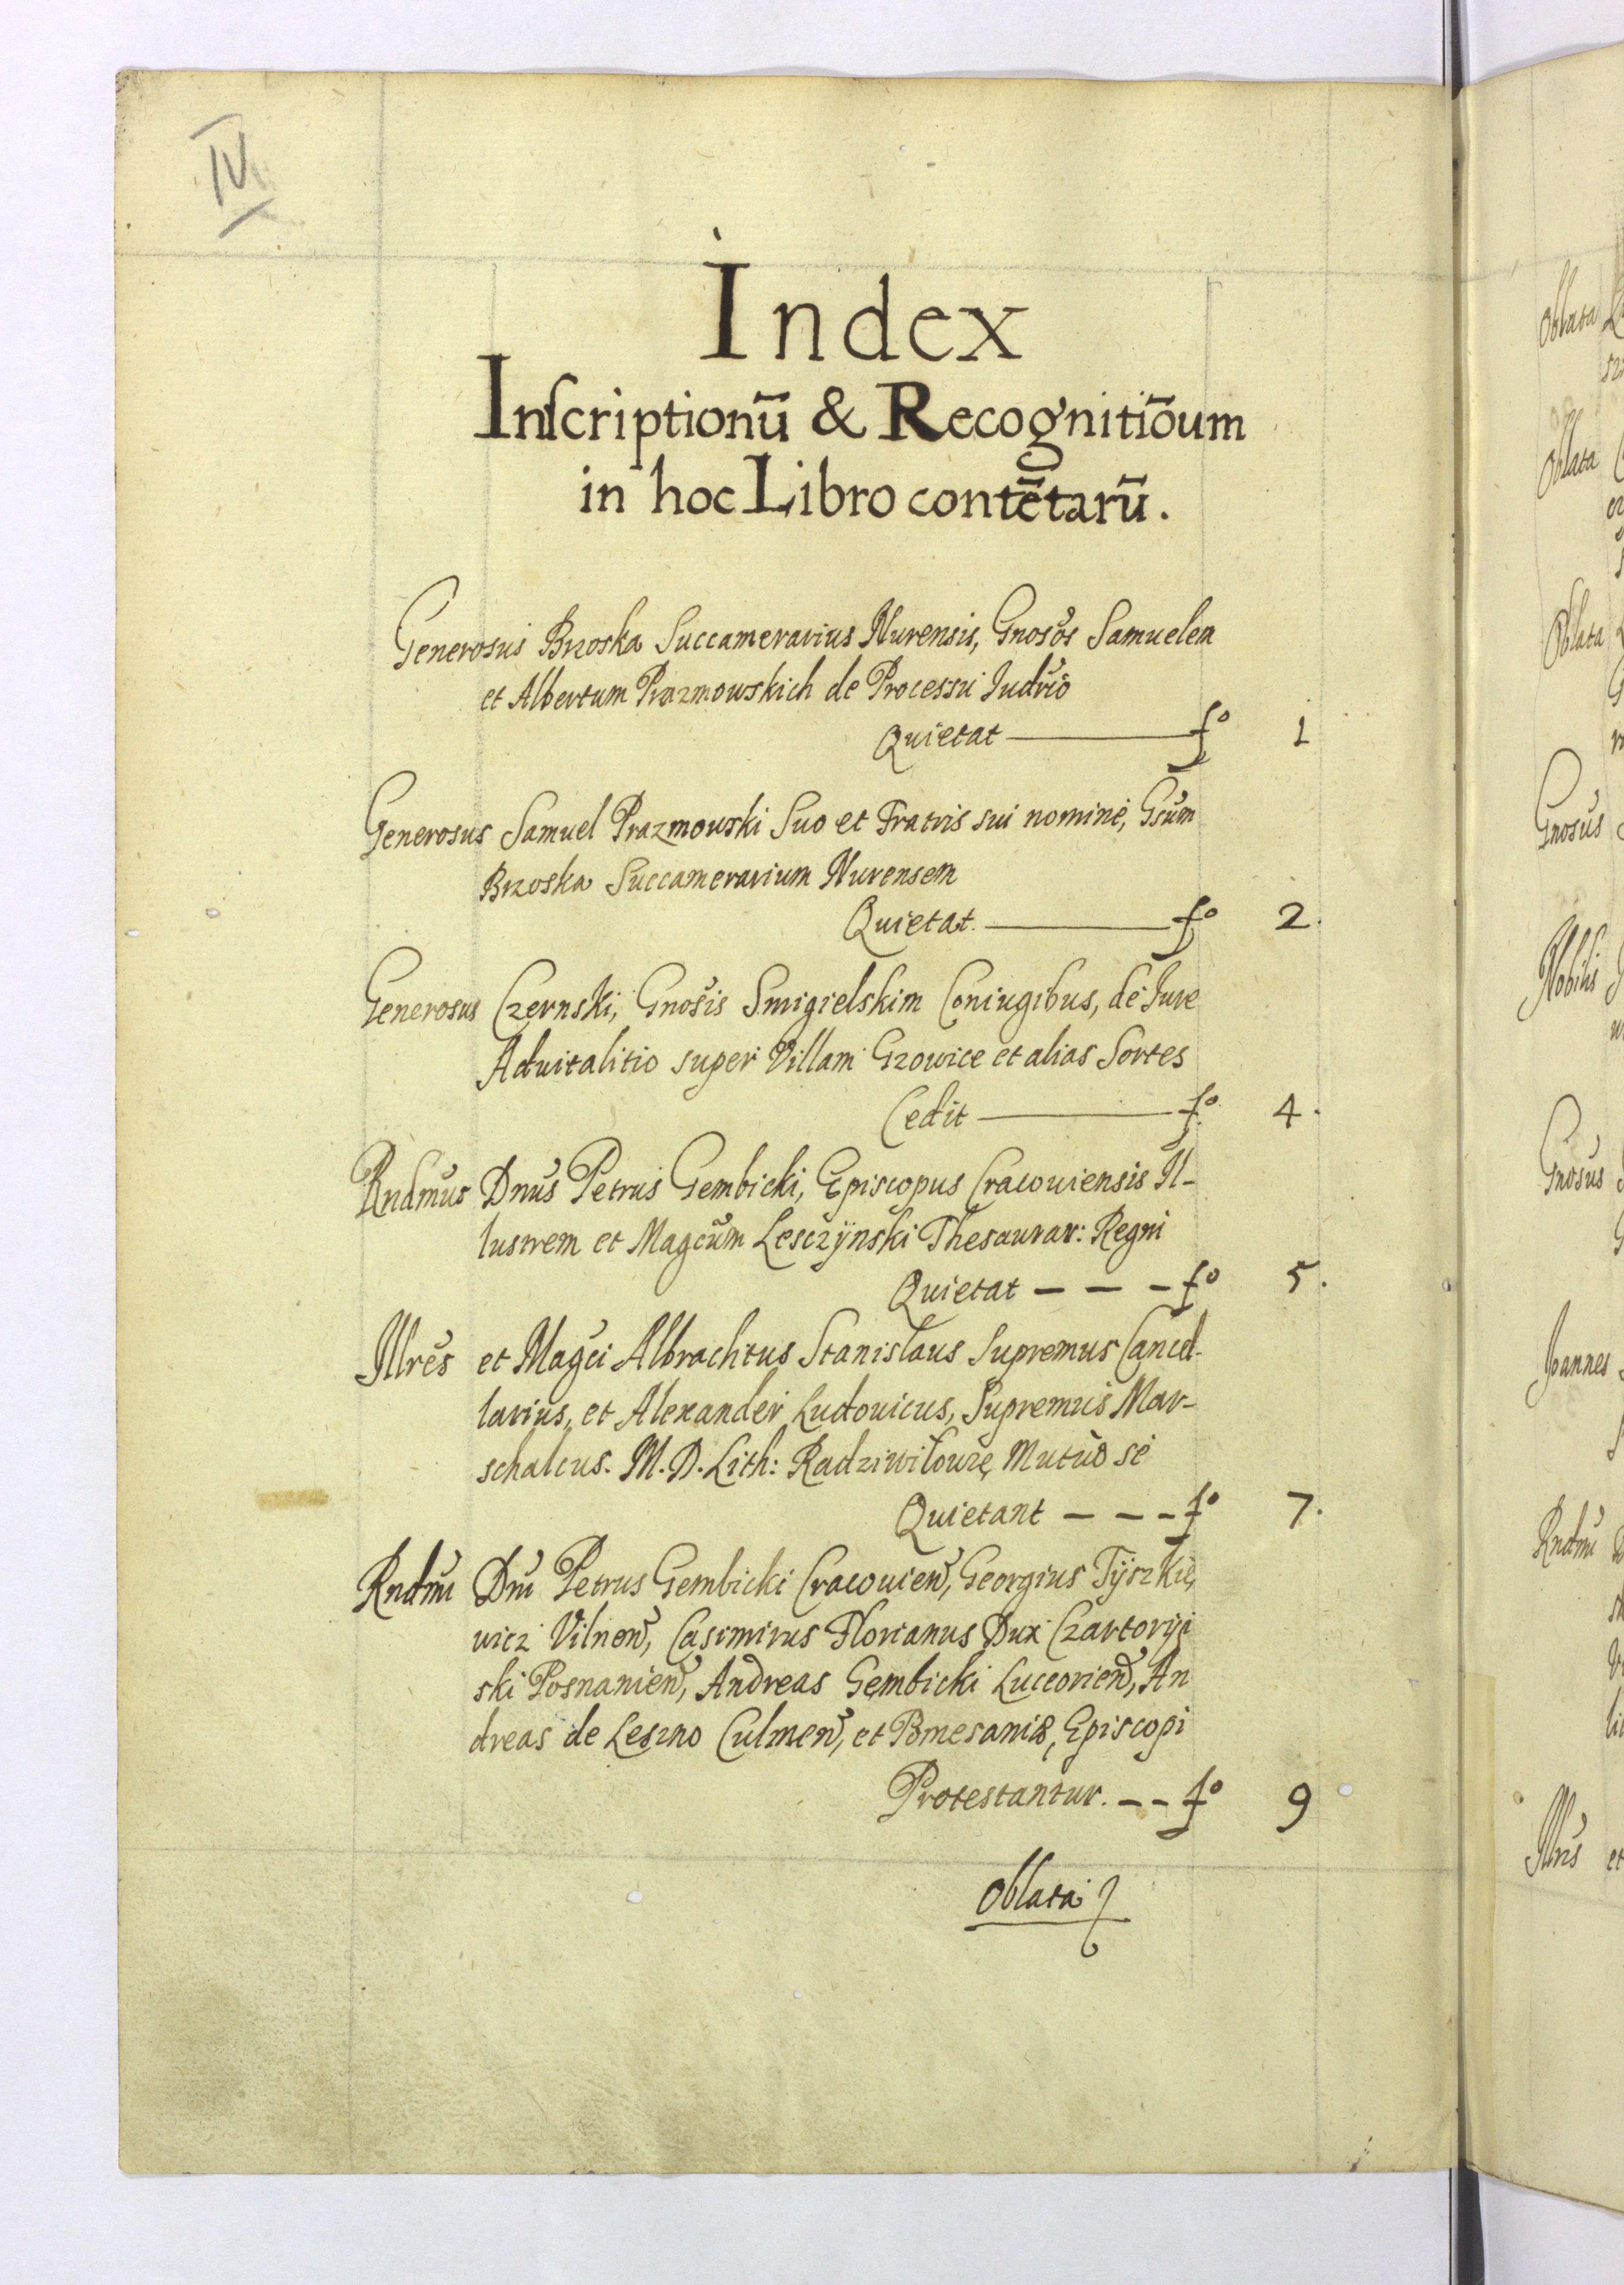 IV
Index
Inſcriptionū & Recognitiōum
in hoc Libro contētarū.
Generosus Brzoska Succamerarius Nurensis, Gnosos Samuelem
et Albertum Prazmowskich de Processu Iudrio
Quietat — fo 1
Generosus Samuel Prazmowski Suo et Fratris sui nomine, Gsum
Brzoska Succamerarium Nurensem
Quietat. — fo 2.
Generosus Czernski, Gnosis Smigielskim Coniugibus, de Iure
Aduitalitio super Villam Gzowice et alias Sortes
Cedit — fo 4.
Rndmus Dnus Petrus Gembicki, Episcopus Cracouiensis Il-
lustrem et Magcum Lesczÿnski Thesaurar: Regni
Quietat — — — fo 5.
Illres et Magci Albrachtus Stanislaus Supremus Cancel-
larius, et Alexander Ludouicus, Supremus Mar-
schalcus. M. D. Lith: Radziwiłowie Mutuo se
Quietant — — — fo 7.
Rndmi Dni Petrus Gembicki Cracouien, Georgius Tÿszkie
wicz Vilnen, Casimirus Florianus Dux Czartoryi
ski Posnanien, Andreas Gembicki Luceorien, An
dreas de Leszno Culmen, et Pomesaniæ, Episcopi
Protestantur. — — fo 9
Oblata
Oblata
Oblata
Oblata
Gnosus
Nobilis
Gnosus
Joannes
Rndmi
Illris et